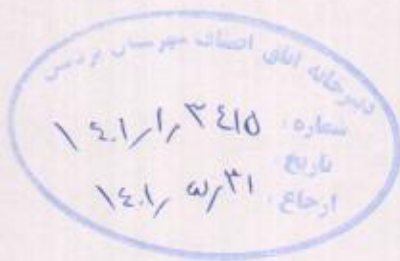 دبیرخانه اتاق اصناف شهرستان پردیس
شماره: ۱۴۰۱/۱/۳۴۱۵
تاریخ: ۱۴۰۱/۵/۳۱
ارجاع: